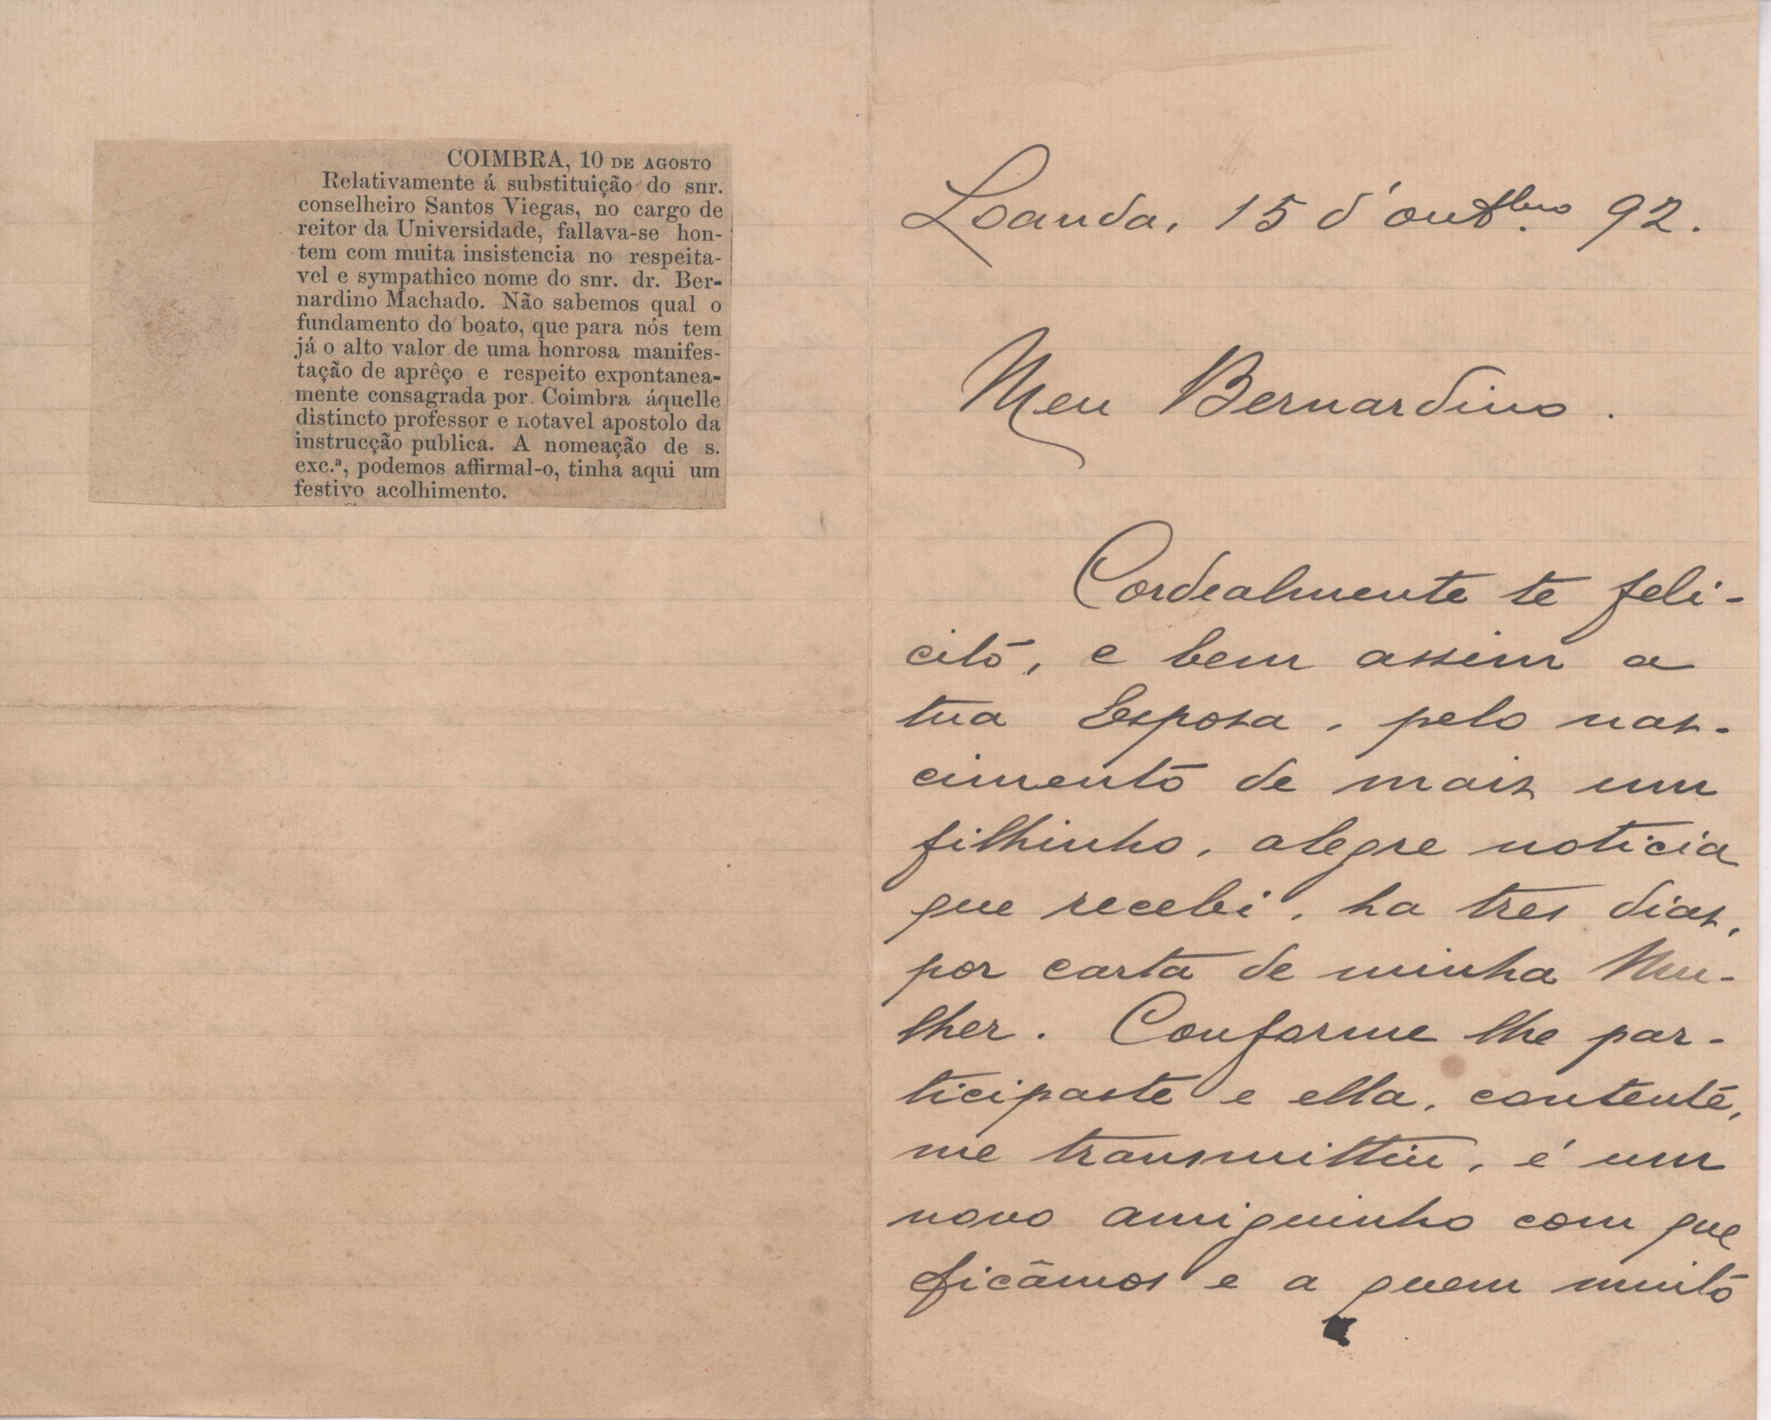 COIMBRA, 10 DE AGOSTO
Relativamente á substituição do snr.
conselheiro Santos Viegas, no cargo de
reitor da Universidade, fallava-se hon-
tem com muita insistencia no respeita-
vel e sympathico nome do snr. dr. Ber-
nardino Machado. Não sabemos qual o
fundamento do boato, que para nós tem
já o alto valor de uma honrosa manifes-
tação de aprêço e respeito expontanea-
mente consagrada por Coimbra áquelle
distincto professor e notavel apostolo da
instrucção publica. A nomeação de s.
exc.ª, podemos affirmal-o, tinha aqui um
festivo acolhimento.
Loanda, 15 d'outbro. 92.
Meu Bernardino.
Cordealmente te feli-
cito, e bem assim a
tua Esposa, pelo nas-
cimento de mais um
filhinho, alegre noticia
que recebi, ha tres dias,
por carta de minha Mu-
lher. Conforme lhe par-
ticipaste e ella, contente,
me transmittiu, é um
novo amiguinho com que
ficâmos e a quem muito